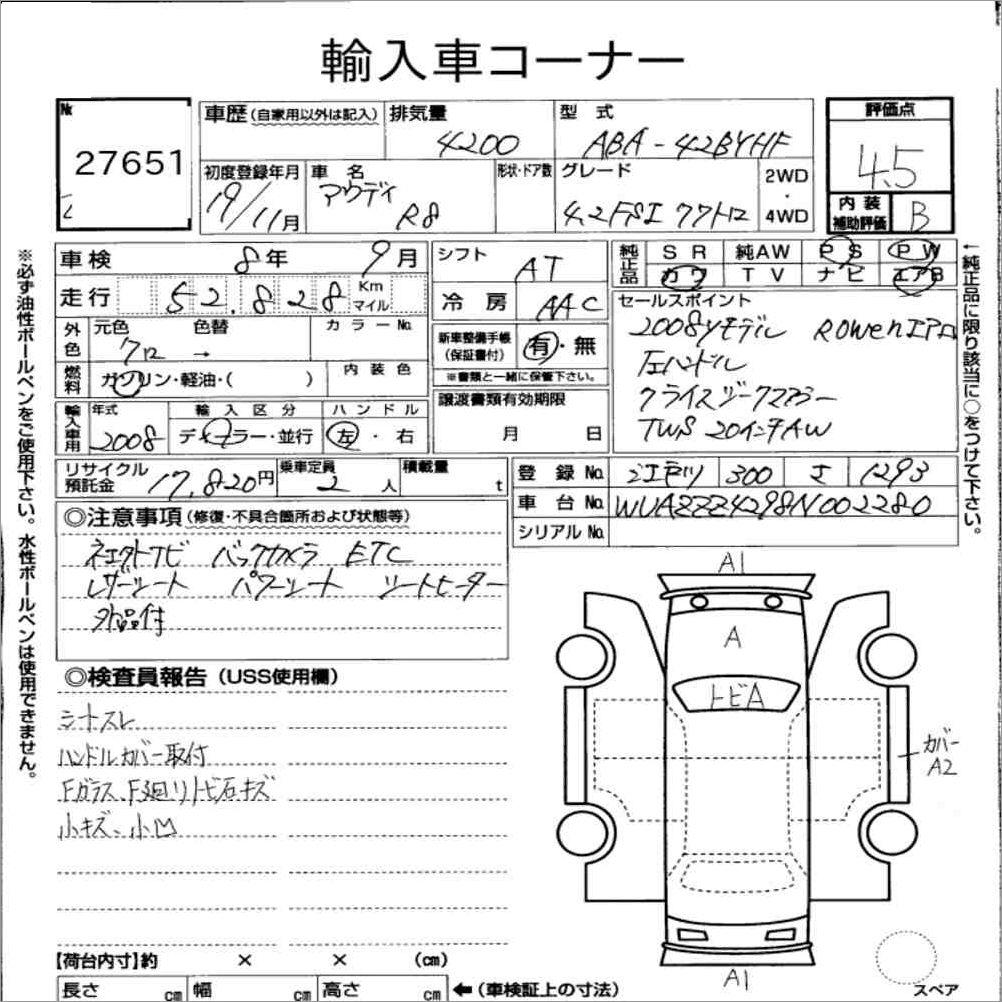 輸入車コーナー
№ 27651
車歴(自家用以外は記入) 排気量 4200 型式 ABA-42BYHF
初度登録年月 19/11月 車名 アウディ R8 形状・ドア数 グレード 4.2FSI クワトロ 2WD・4WD
評価点 4.5
内装補助評価 B
車検 8年 9月
走行 52,828 Km マイル
外色 元色 クロ 色替 → カラーNo.
燃料 ガソリン・軽油・( ) 内装色
輸入車用 年式 2008 輸入区分 ディーラー・並行 ハンドル 左・右
リサイクル預託金 17,820円 乗車定員 2人 積載量 t
シフト AT
冷房 AAC
新車整備手帳(保証書付) 有・無
※書類と一緒に保管下さい。
譲渡書類有効期限
月 日
純正品 SR 純AW PS PW
カワ TV ナビ エアB
セールスポイント
2008yモデル Rowenエアロ
左ハンドル
TWS 20インチAW
登録No. 300 さ 1293
車台No. WUAZZZ4298N002280
シリアルNo.
◎注意事項(修復・不具合箇所および状態等)
バックカメラ ETC
レザーシート パワーシート シートヒーター
外品付
◎検査員報告(USS使用欄)
シートスレ
ハンドルカバー取付
Fガラス、F廻りトビ石キズ
小キズ、小凹
A1
A
トビA
カバー
A2
A1
スペア
【荷台内寸】約 × × (cm)
長さ cm 幅 cm 高さ cm ←(車検証上の寸法)
※必ず油性ボールペンをご使用下さい。水性ボールペンは使用できません。
←純正品に限り該当に○をつけて下さい。